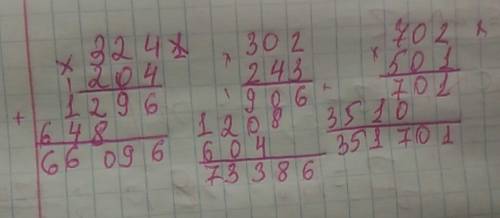 324
× 204
1296
+ 648
66096
302
× 243
906
1208
604
73386
702 ×
× 501
701
3510
351701